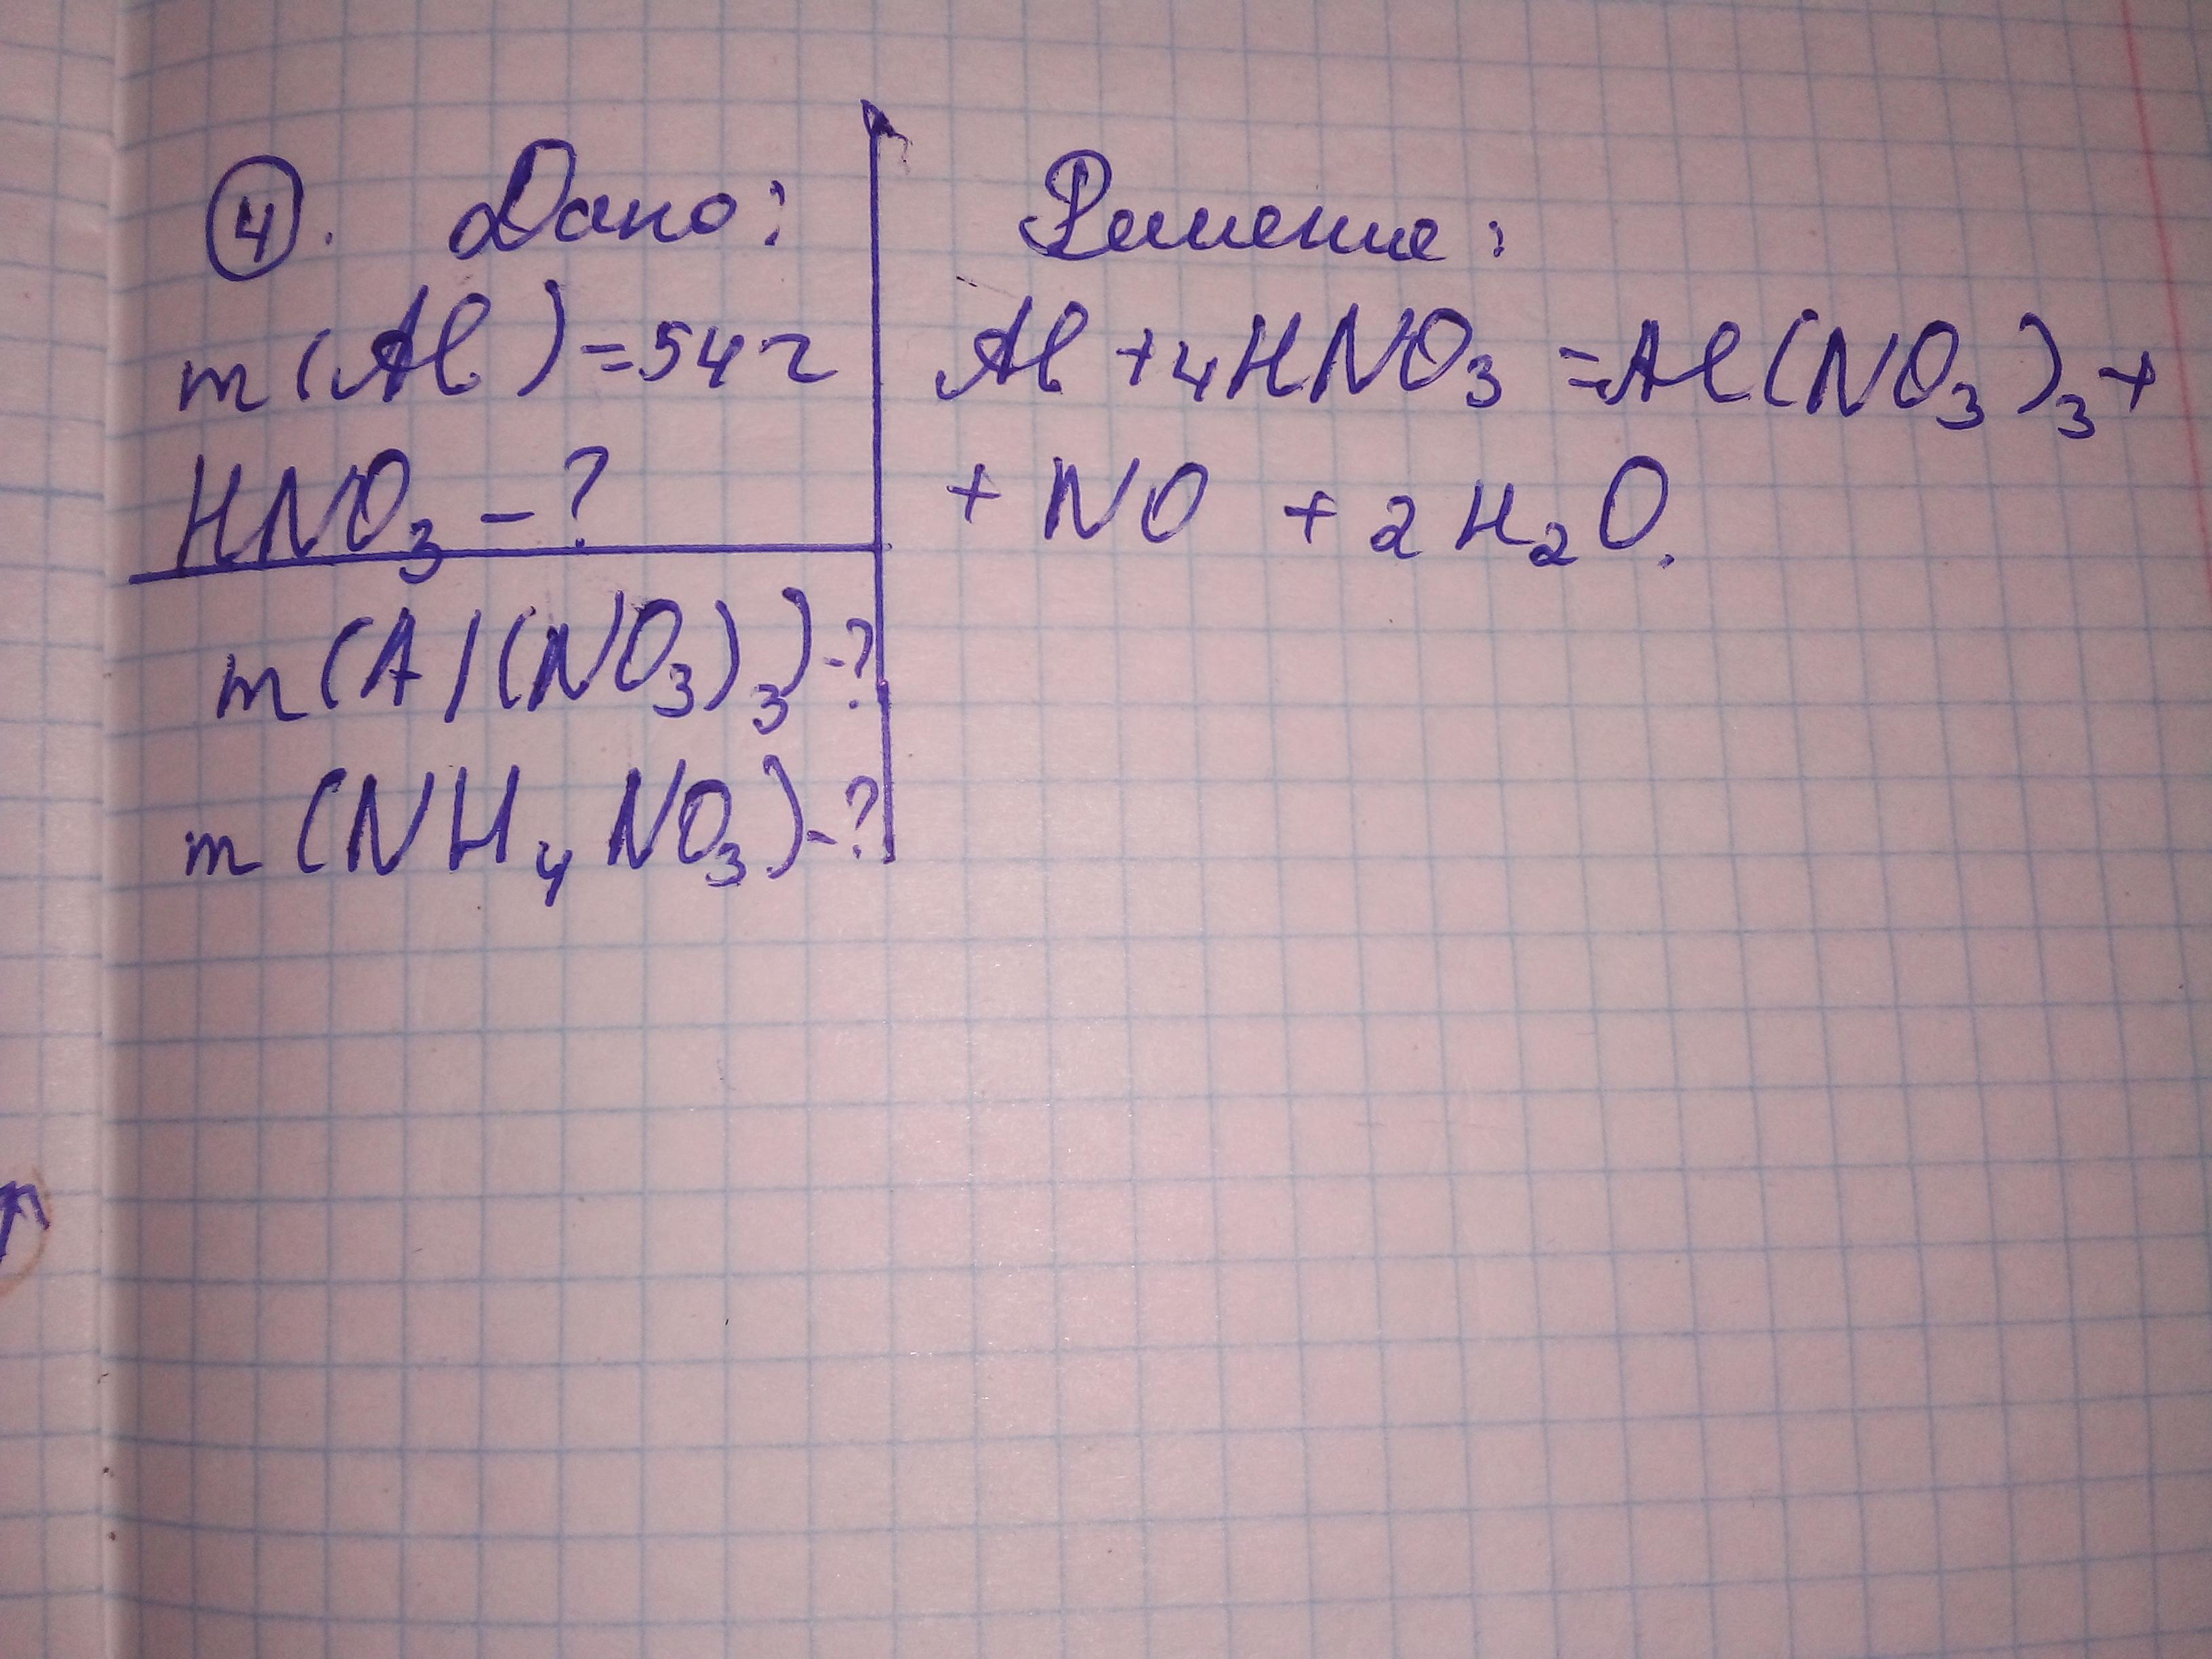 4. Дано:
m(Al)=54г
HNO₃-?
m(Al(NO₃)₃)-?
m(NH₄NO₃)-?
Решение:
Al+4HNO₃=Al(NO₃)₃+
+NO+2H₂O.